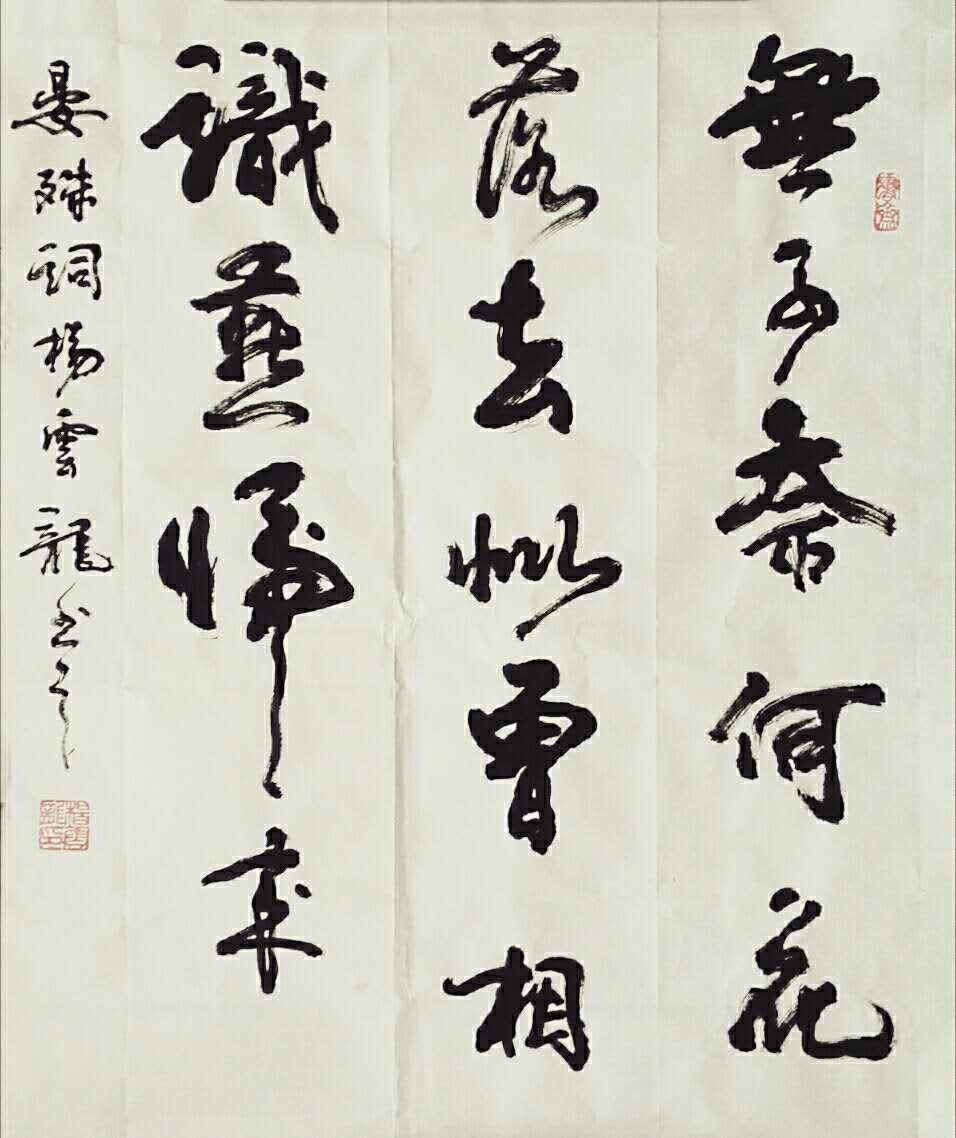 無可奈何花
落去似曾相
識燕歸來
晏殊詞楊雲龍書之
楊雲龍印